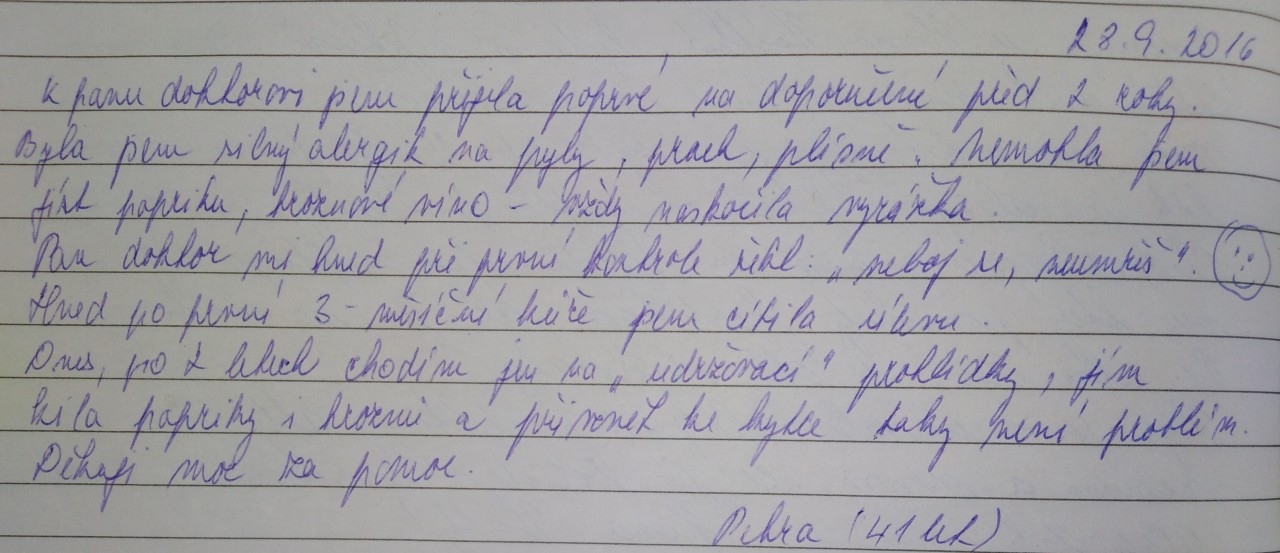 28.9.2016
K panu doktorovi jsem přijela poprvé na doporučení před 2 roky.
Byla jsem silný alergik na pyly, prach, plísně. Nemohla jsem
jíst papriku, hroznové víno – vždy naskočila vyrážka.
Pan doktor mi hned při první kontrole řekl: „neboj se, neumřeš“.
Hned po první 3-měsíční kúře jsem cítila úlevu.
Dnes, po 2 letech chodím jen na „udržovací“ prohlídky, jím
kila papriky i hroznů a přivonět ke kytce taky není problém.
Děkuji moc za pomoc.
Petra (41 let)